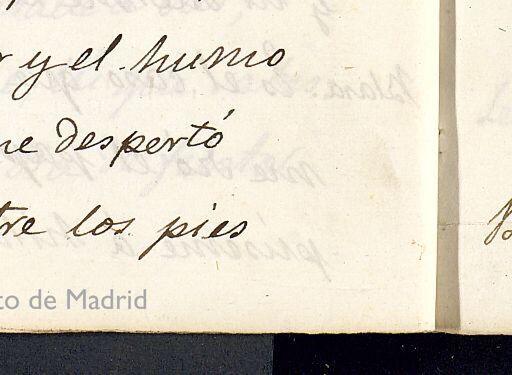 r y el humo
me despertó
tre los pies
to de Madrid